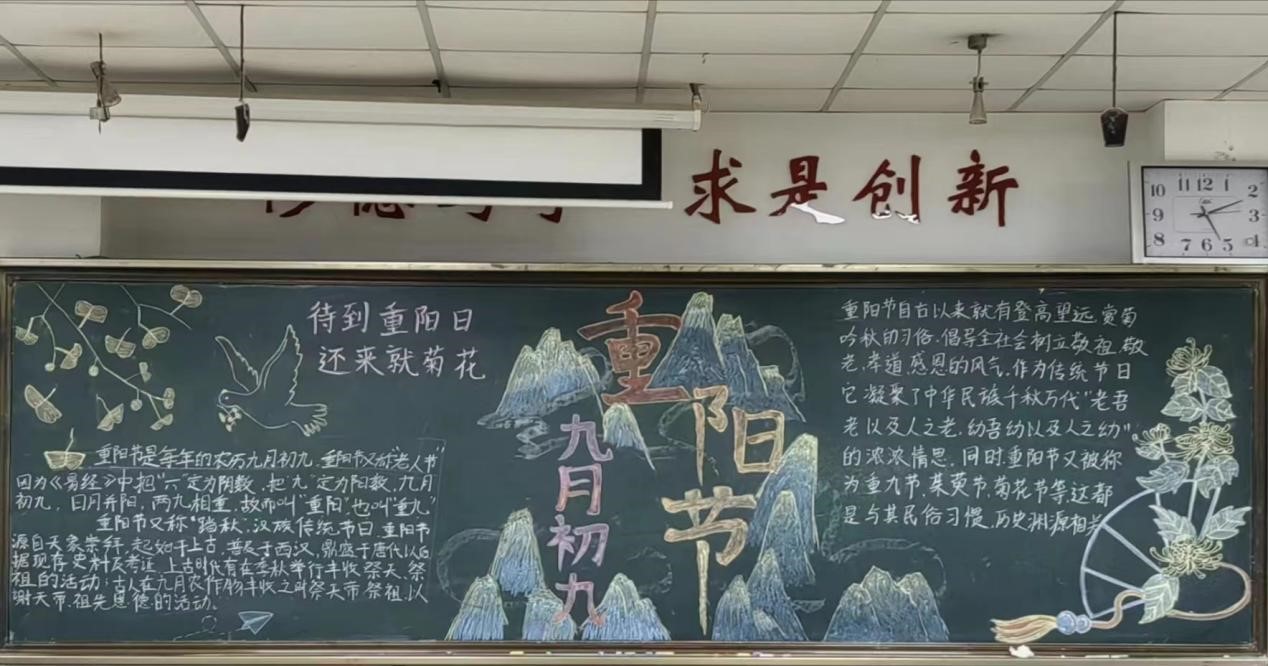 求是创新
10 11 12 1 2
9 3
8 7 6 5 4
待到重阳日
还来就菊花
重阳节
九月初九
重阳节是每年的农历九月初九,重阳节又称“老人节”
因为《易经》中把“六”定为阴数,把“九”定为阳数,九月
初九,日月并阳,两九相重,故而叫“重阳”,也叫“重九”
重阳节又称“踏秋”,汉族传统节日,重阳节
源自天象崇拜,起始于上古,普及于西汉,鼎盛于唐代以后
据现存史料及考证,上古时代有在季秋举行丰收祭天、祭
祖的活动;古人在九月农作物丰收之时祭天帝祭祖,以
谢天帝、祖先恩德的活动。
重阳节自古以来就有登高望远,赏菊
吟秋的习俗,倡导全社会树立敬祖,敬
老,孝道,感恩的风气,作为传统节日
它凝聚了中华民族千秋万代“老吾
老以及人之老,幼吾幼以及人之幼”
的浓浓情思,同时,重阳节又被称
为重九节,茱萸节,菊花节等,这都
是与其民俗习惯,历史渊源相关